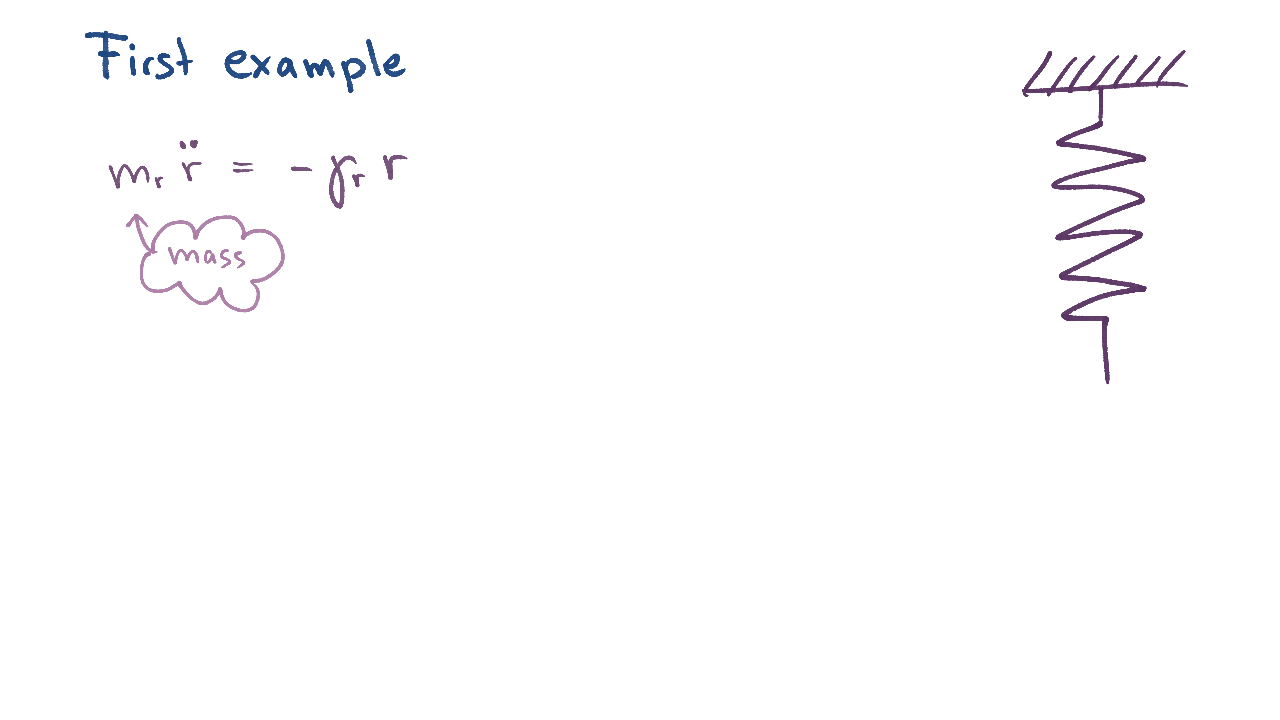 First example
mᵣ r̈ = - γᵣ r
mass